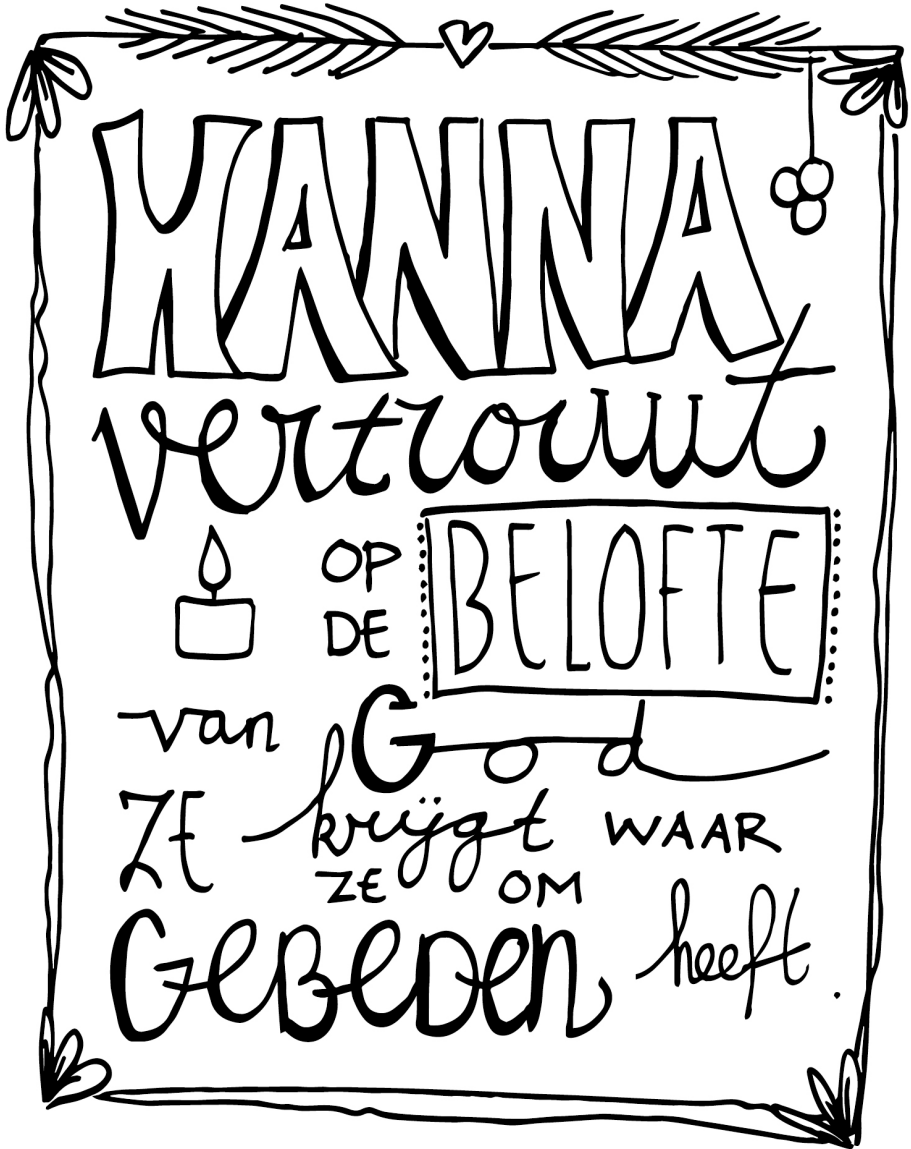 HANNA
vertrouwt
OP
DE
BELOFTE
van God
ZE krijgt WAAR
ZE OM
GEBEDEN heeft.